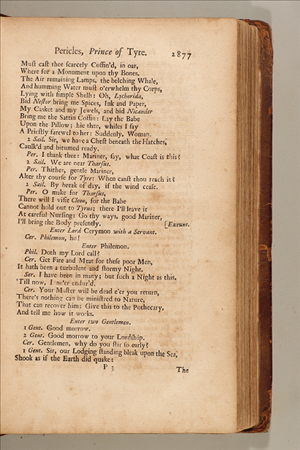 Pericles, Prince of Tyre. 2877
Must cast thee scarcely Coffin'd, in oar,
Where for a Monument upon thy Bones,
The Air remaining Lamps, the belching Whale,
And humming Water must o'erwhelm thy Corps,
Lying with simple Shells: Oh, Lychorida,
Bid Nestor bring me Spices, Ink and Paper,
My Casket and my Jewels, and bid Nicander
Bring me the Sattin Coffin: Lay the Babe
Upon the Pillow; hie thee, whiles I say
A Priestly farewel to her: Suddenly, Woman.
2 Sail. Sir, we have a Chest beneath the Hatches,
Caulk'd and bitumed ready.
Per. I thank thee: Mariner, say, what Coast is this?
2 Sail. We are near Tharsus.
Per. Thither, gentle Mariner,
Alter thy course for Tyre: When canst thou reach it?
2 Sail. By break of day, if the wind cease.
Per. O make for Tharsus,
There will I visit Cleon, for the Babe
Cannot hold out to Tyrus; there I'll leave it
At careful Nursing: Go thy ways, good Mariner,
I'll bring the Body presently. [Exeunt.
Enter Lord Cerymon with a Servant.
Cer. Philemon, ho!
Enter Philemon.
Phil. Doth my Lord call?
Cer. Get Fire and Meat for these poor Men,
It hath been a turbulent and stormy Night.
Ser. I have been in many; but such a Night as this,
'Till now, I ne'er endur'd.
Cer. Your Master will be dead e'er you return,
There's nothing can be ministred to Nature,
That can recover him: Give this to the Pothecary,
And tell me how it works.
Enter two Gentlemen.
1 Gent. Good morrow.
2 Gent. Good morrow to your Lordship.
Cer. Gentlemen, why do you stir so early?
1 Gent. Sir, our Lodging standing bleak upon the Sea,
Shook as if the Earth did quake:
P 3 The